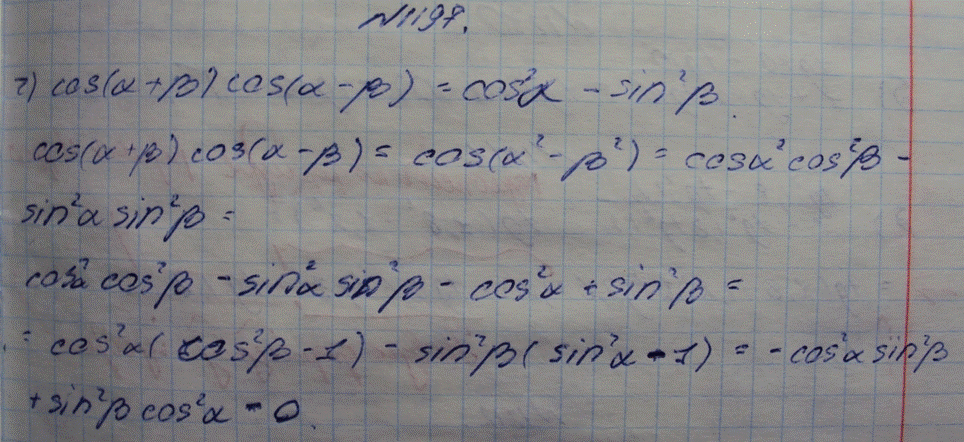 №1197.
г) cos(α+β) cos(α-β) = cos²α - sin²β.
cos(α+β) cos(α-β) = cos(α²-β²) = cosα² cos²β -
sin²α sin²β =
cos²α cos²β - sin²α sin²β - cos²α + sin²β =
= cos²α(cos²β-1) - sin²β(sin²α-1) = -cos²α sin²β
+sin²β cos²α = 0.